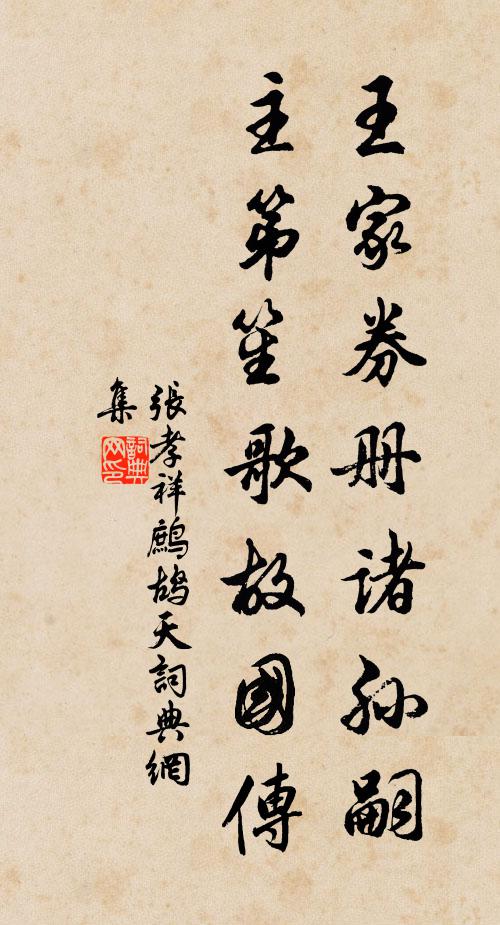 王家券册諸孙嗣
主第笙歌故國傳
張孝祥鷓鴣天詞典網
集
詞典
网印